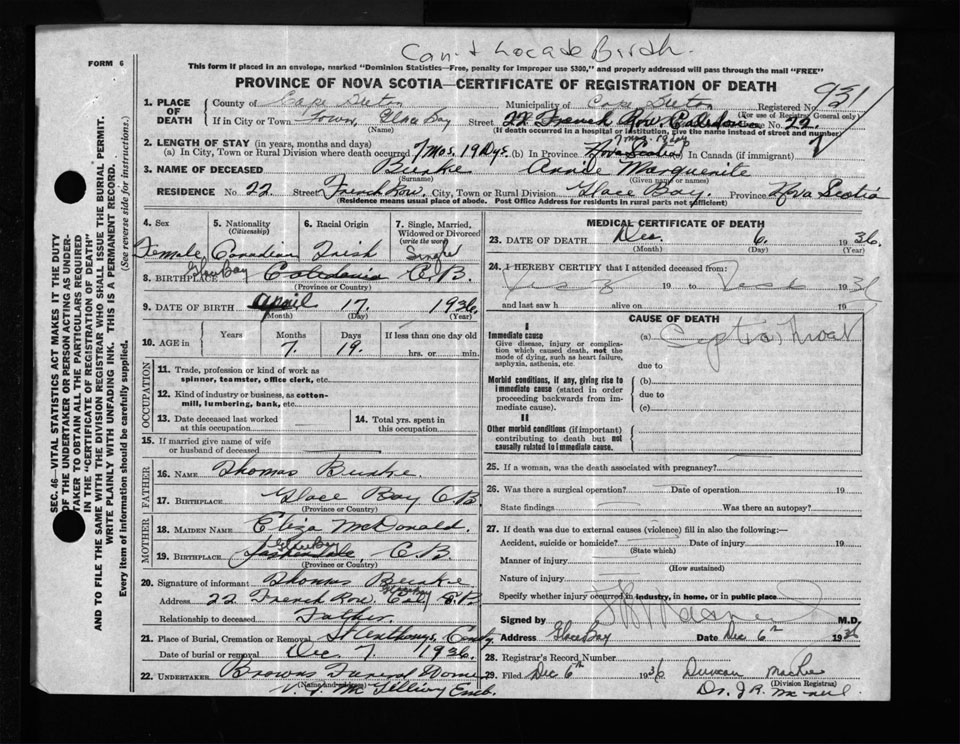 Can't Locate Birth.
FORM 6
This form if placed in an envelope, marked "Dominion Statistics—Free, penalty for improper use $300," and properly addressed will pass through the mail "FREE"
PROVINCE OF NOVA SCOTIA—CERTIFICATE OF REGISTRATION OF DEATH
931
1. PLACE OF DEATH
County of Cape Breton Municipality of Cape Breton Registered No.
(For use of Registrar General only)
If in City or Town Town, Glace Bay Street 22 French Row Caledonia House No. 22.
(Name) (If death occurred in a hospital or institution, give the name instead of street and number)
2. LENGTH OF STAY (in years, months and days) 7 mos. 19 days
(a) In City, Town or Rural Division where death occurred 7 Mos. 19 Dys. (b) In Province Nova Scotia In Canada (if immigrant)
3. NAME OF DECEASED Burke Annie Marguerite
(Surname) (Given name or names)
RESIDENCE No. 22 Street French Row. City, Town or Rural Division Glace Bay. Province Nova Scotia
(Residence means usual place of abode. Post Office Address for residents in rural parts not sufficient)
SEC. 46—VITAL STATISTICS ACT MAKES IT THE DUTY
OF THE UNDERTAKER OR PERSON ACTING AS UNDER-
TAKER TO OBTAIN ALL THE PARTICULARS REQUIRED
IN THE "CERTIFICATE OF REGISTRATION OF DEATH"
AND TO FILE THE SAME WITH THE DIVISION REGISTRAR WHO SHALL ISSUE THE BURIAL PERMIT.
WRITE PLAINLY WITH UNFADING INK. THIS IS A PERMANENT RECORD.
Every item of information should be carefully supplied. (See reverse side for instructions.)
4. Sex 5. Nationality (Citizenship) 6. Racial Origin 7. Single, Married, Widowed or Divorced (write the word)
Female Canadian Irish Single
Glace Bay
8. BIRTHPLACE Caledonia C.B.
(Province or Country)
9. DATE OF BIRTH April 17. 1936.
(Month) (Day) (Year)
10. AGE in Years Months Days If less than one day old
7. 19. hrs. or min.
OCCUPATION
11. Trade, profession or kind of work as spinner, teamster, office clerk, etc.
12. Kind of industry or business, as cotton-mill, lumbering, bank, etc.
13. Date deceased last worked at this occupation
14. Total yrs. spent in this occupation
15. If married give name of wife or husband of deceased
FATHER
16. NAME Thomas Burke
17. BIRTHPLACE Glace Bay C.B.
(Province or Country)
MOTHER
18. MAIDEN NAME Eliza McDonald.
Glace Bay
19. BIRTHPLACE C.B.
(Province or Country)
20. Signature of informant Thomas Burke
Glace Bay
Address 22 French Row. Cal. C.B.
Relationship to deceased Father.
21. Place of Burial, Cremation or Removal St Anthonys,
Date of burial or removal Dec. 7. 1936.
22. UNDERTAKER Browns Funeral Home
(Name and address)
Emb.
MEDICAL CERTIFICATE OF DEATH
23. DATE OF DEATH Dec. 6. 1936.
(Month) (Day) (Year)
24. I HEREBY CERTIFY that I attended deceased from:
19 to 193
and last saw h alive on 19
CAUSE OF DEATH
I
Immediate cause
Give disease, injury or complication which caused death, not the mode of dying, such as heart failure, asphyxia, asthenia, etc.
(a) throat
due to
Morbid conditions, if any, giving rise to immediate cause (stated in order proceeding backwards from immediate cause).
(b)
due to
(c)
II
Other morbid conditions (if important) contributing to death but not causally related to immediate cause.
25. If a woman, was the death associated with pregnancy?
26. Was there a surgical operation? Date of operation 19
State findings Was there an autopsy?
27. If death was due to external causes (violence) fill in also the following:—
Accident, suicide or homicide? Date of injury 19
(State which)
Manner of injury
(How sustained)
Nature of injury
Specify whether injury occurred in industry, in home, or in public place
Signed by M.D.
Address Glace Bay Date Dec 6th 1936
28. Registrar's Record Number
29. Filed Dec 6th 1936 Duncan
(Division Registrar)
Dr. J.A. McNeil